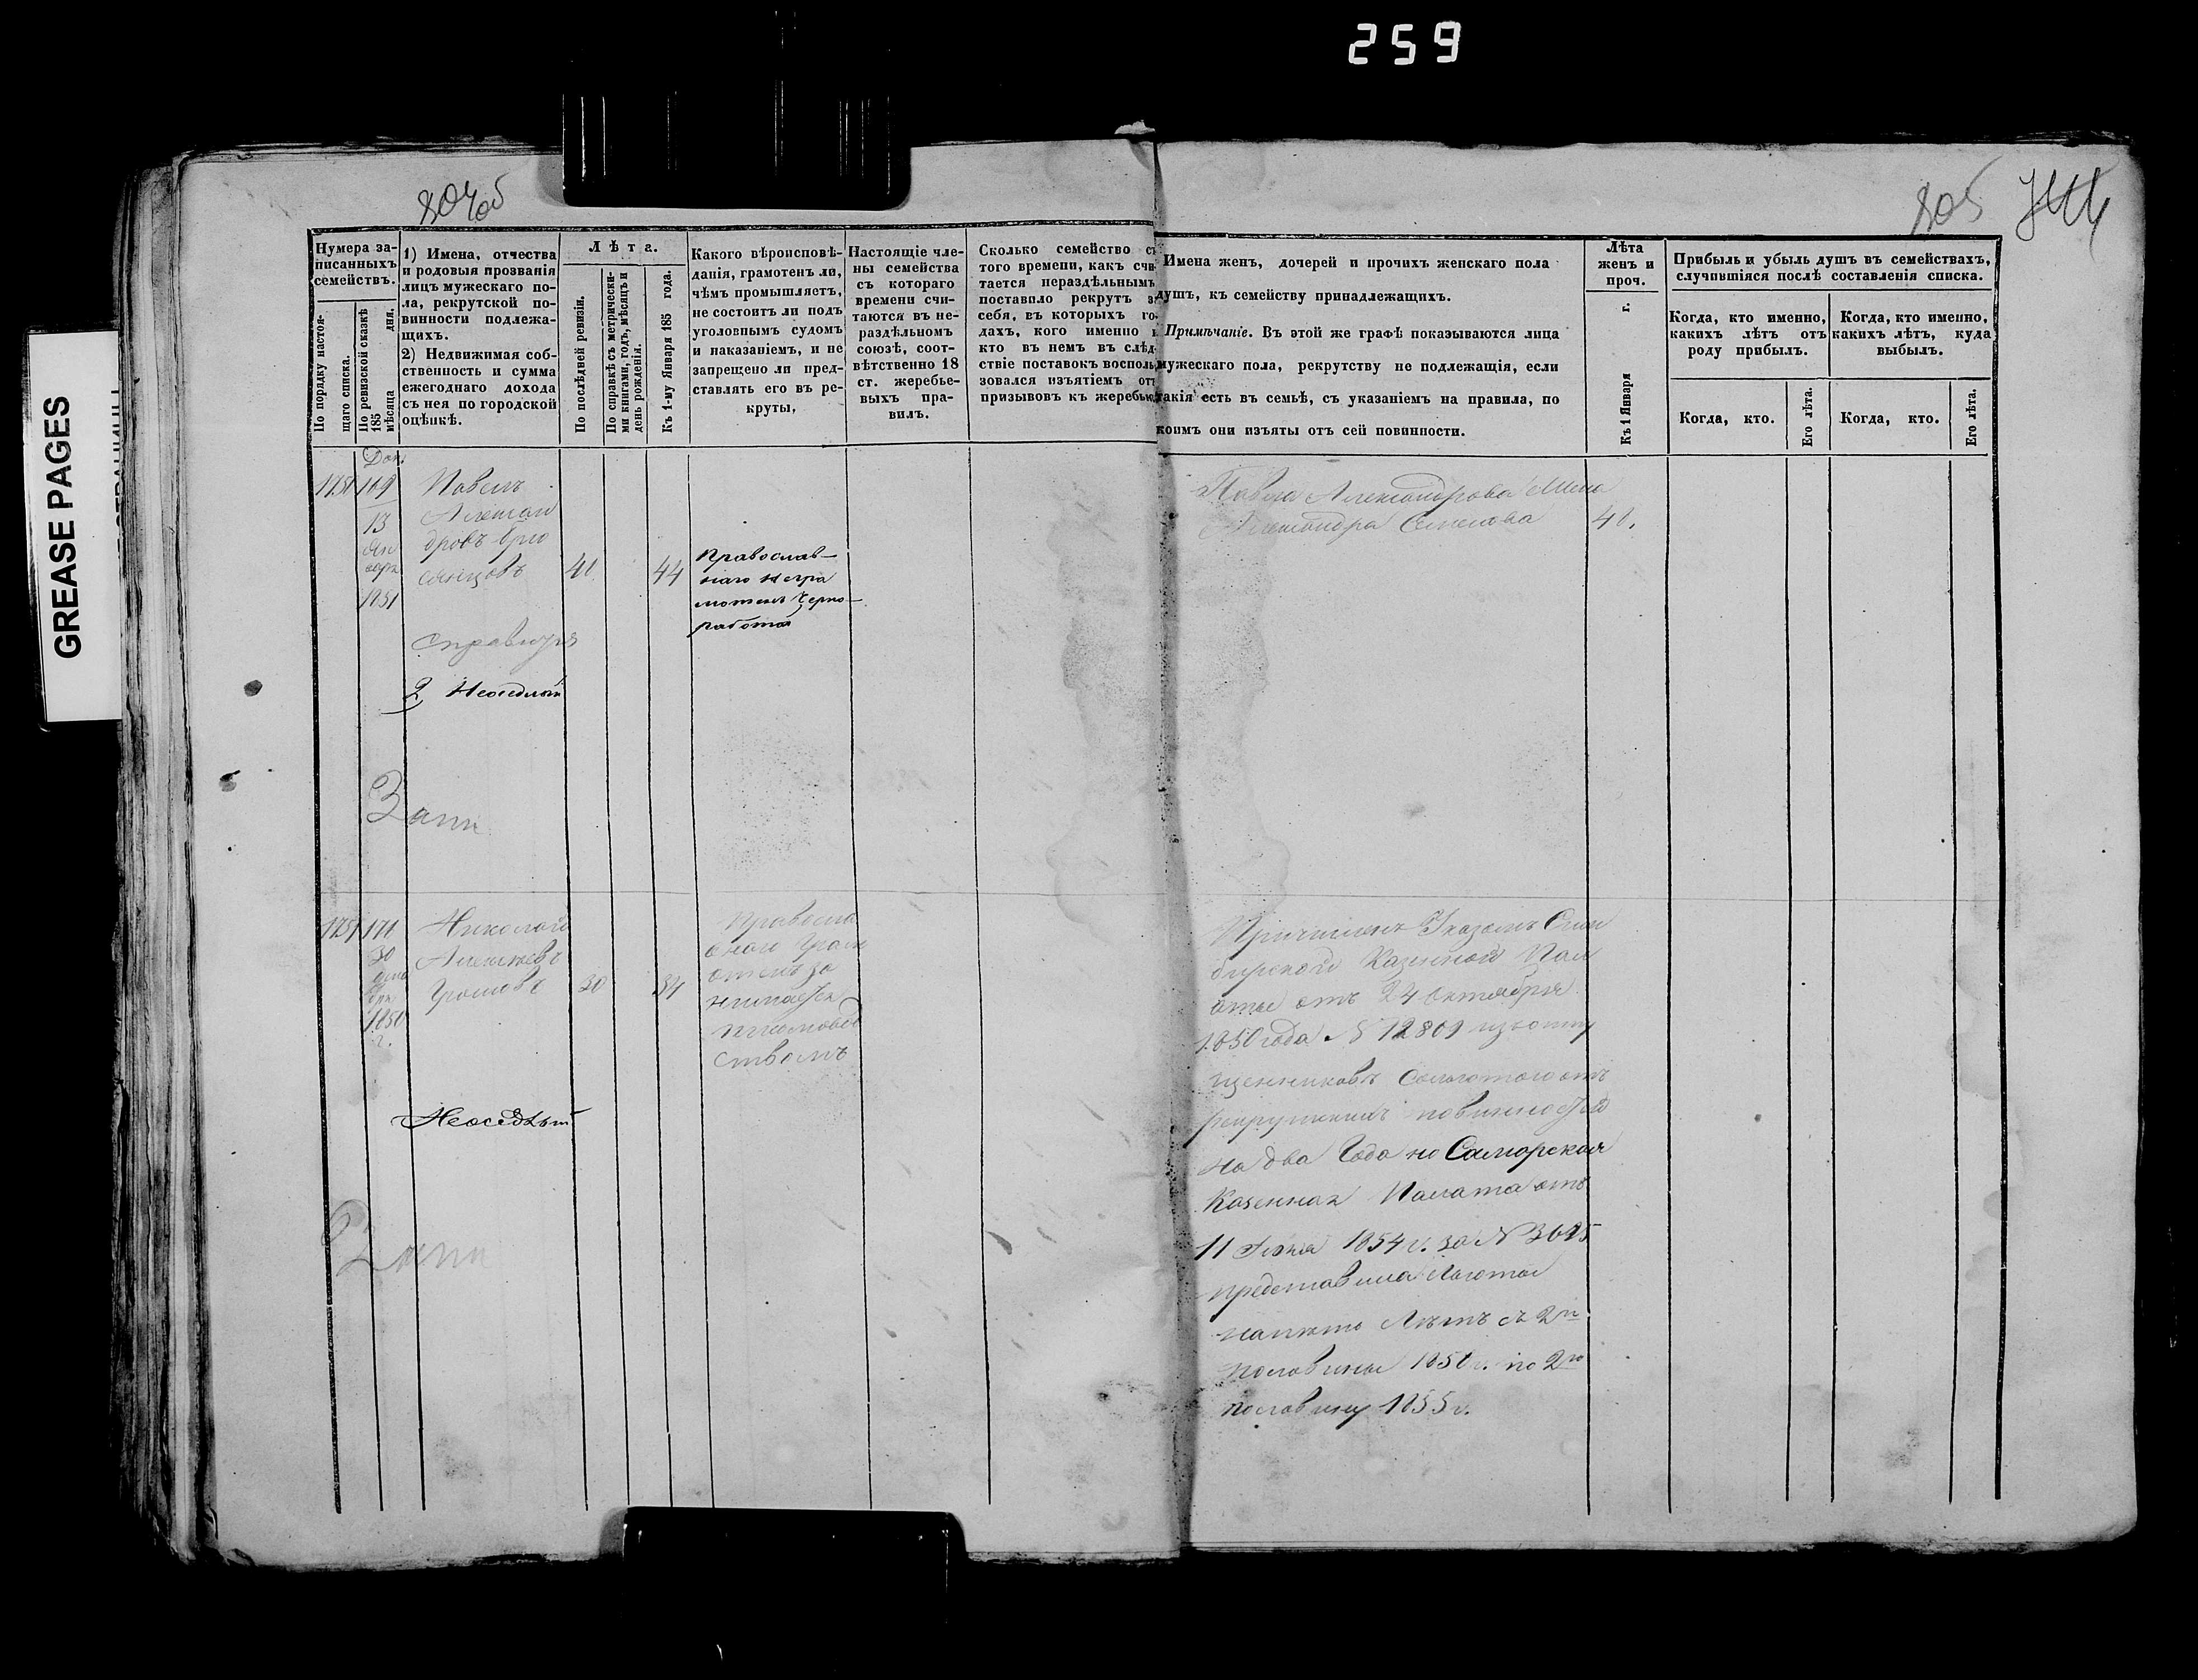 259
GREASE PAGES
804 об
805
Нумера за-
писанныхъ
семействъ.
По порядку настоя-
щаго списка.
По ревизской сказкѣ
185
мѣсяца дня.
1) Имена, отчества
и родовыя прозванія
лицъ мужескаго по-
ла, рекрутской по-
винности подлежа-
щихъ.
2) Недвижимая соб-
ственность и сумма
ежегоднаго дохода
съ нея по городской
оцѣнкѣ.
Лѣта.
По послѣдней ревизіи.
По справкѣ съ метрически-
ми книгами, годъ, мѣсяцъ и
день рожденія.
Къ 1-му Января 185 года.
Какого вѣроисповѣ-
данія, грамотенъ ли,
чѣмъ промышляетъ,
не состоитъ ли подъ
уголовнымъ судомъ
и наказаніемъ, и не
запрещено ли пред-
ставлять его въ ре-
круты,
Настоящіе чле-
ны семейства
съ котораго
времени счи-
таются въ не-
раздѣльномъ
союзѣ, соот-
вѣтственно 18
ст. жеребье-
выхъ пра-
вилъ.
Сколько семейство съ
того времени, какъ счи-
тается нераздѣльнымъ
поставило рекрутъ за
себя, въ которыхъ го-
дахъ, кого именно и
кто въ немъ въ слѣд-
ствіе поставокъ восполь-
зовался изъятіемъ отъ
призывовъ къ жеребью.
Имена женъ, дочерей и прочихъ женскаго пола
душъ, къ семейству принадлежащихъ.
Примѣчаніе. Въ этой же графѣ показываются лица
мужескаго пола, рекрутству не подлежащія, если
такія есть въ семьѣ, съ указаніемъ на правила, по
коимъ они изъяты отъ сей повинности.
Лѣта
женъ и
проч.
Къ 1 Января г.
Прибыль и убыль душъ въ семействахъ,
случившіяся послѣ составленія списка.
Когда, кто именно,
какихъ лѣтъ отъ
роду прибылъ.
Когда, кто именно,
какихъ лѣтъ, куда
выбылъ.
Когда, кто.
Его лѣта.
Когда, кто.
Его лѣта.
Доп.
169
13
Ян
варя
1851
Павелъ
Алексан
дровъ
44
Православ-
наго негра
мотенъ черно-
работа
Павла Александрова Жена
Александра Семенова
2 Неоседлый
Запи
171
30
1850
г.
Николай
Алексѣевъ
30
34
Правосла
внаго грам
отенъ за
нимается
ством
Неоседлый
Запи
Причисленъ Указомъ Сим
бирской Казенной Пал
аты отъ 24 Октября
1850 года № 12809
съ льготою отъ
рекрутскихъ повинностей
на два Года но Самарская
Казенная Палата отъ
11 Июня 1854 г. за №
представила льготы
на пять Лѣтъ съ 2й
половины 1850 г. по 2ю
половину 1855 г.